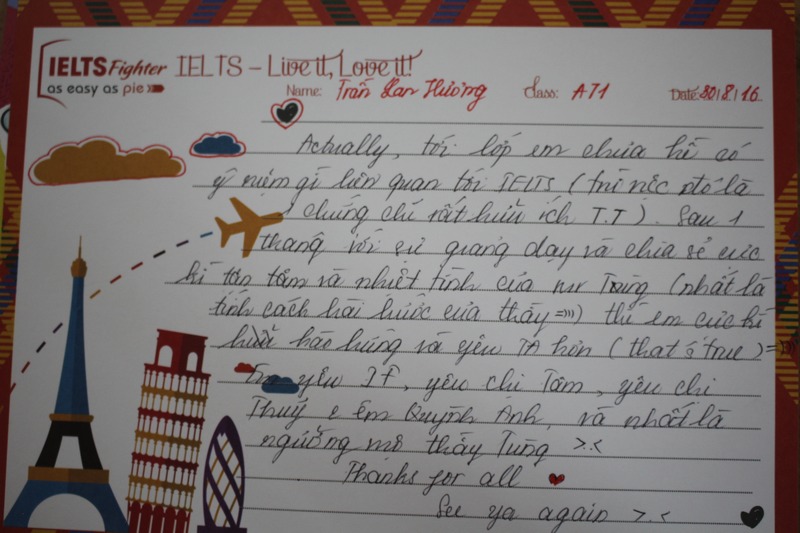 IELTS Fighter IELTS – Live it, Love it!
as easy as pie
Name: Trần Lan Hương Class: A71 Date: 30/8/16
Actually, tới lớp em chưa hề có
ý niệm gì liên quan tới IELTS (trừ việc nó là
1 chứng chỉ rất hữu ích T.T). Sau 1
tháng với sự giảng dạy và chia sẻ cực
kì tận tâm và nhiệt tình của mr Tùng (nhất là
tính cách hài hước của thầy =))) thì em cực kì
hào hứng và yêu TA hơn (that's true) =))))
Em yêu IF, yêu chị Tâm, yêu chị
Thuý, em Quỳnh Anh, và nhất là
ngưỡng mộ thầy Tùng >.<
Thanks for all
See ya again >.<